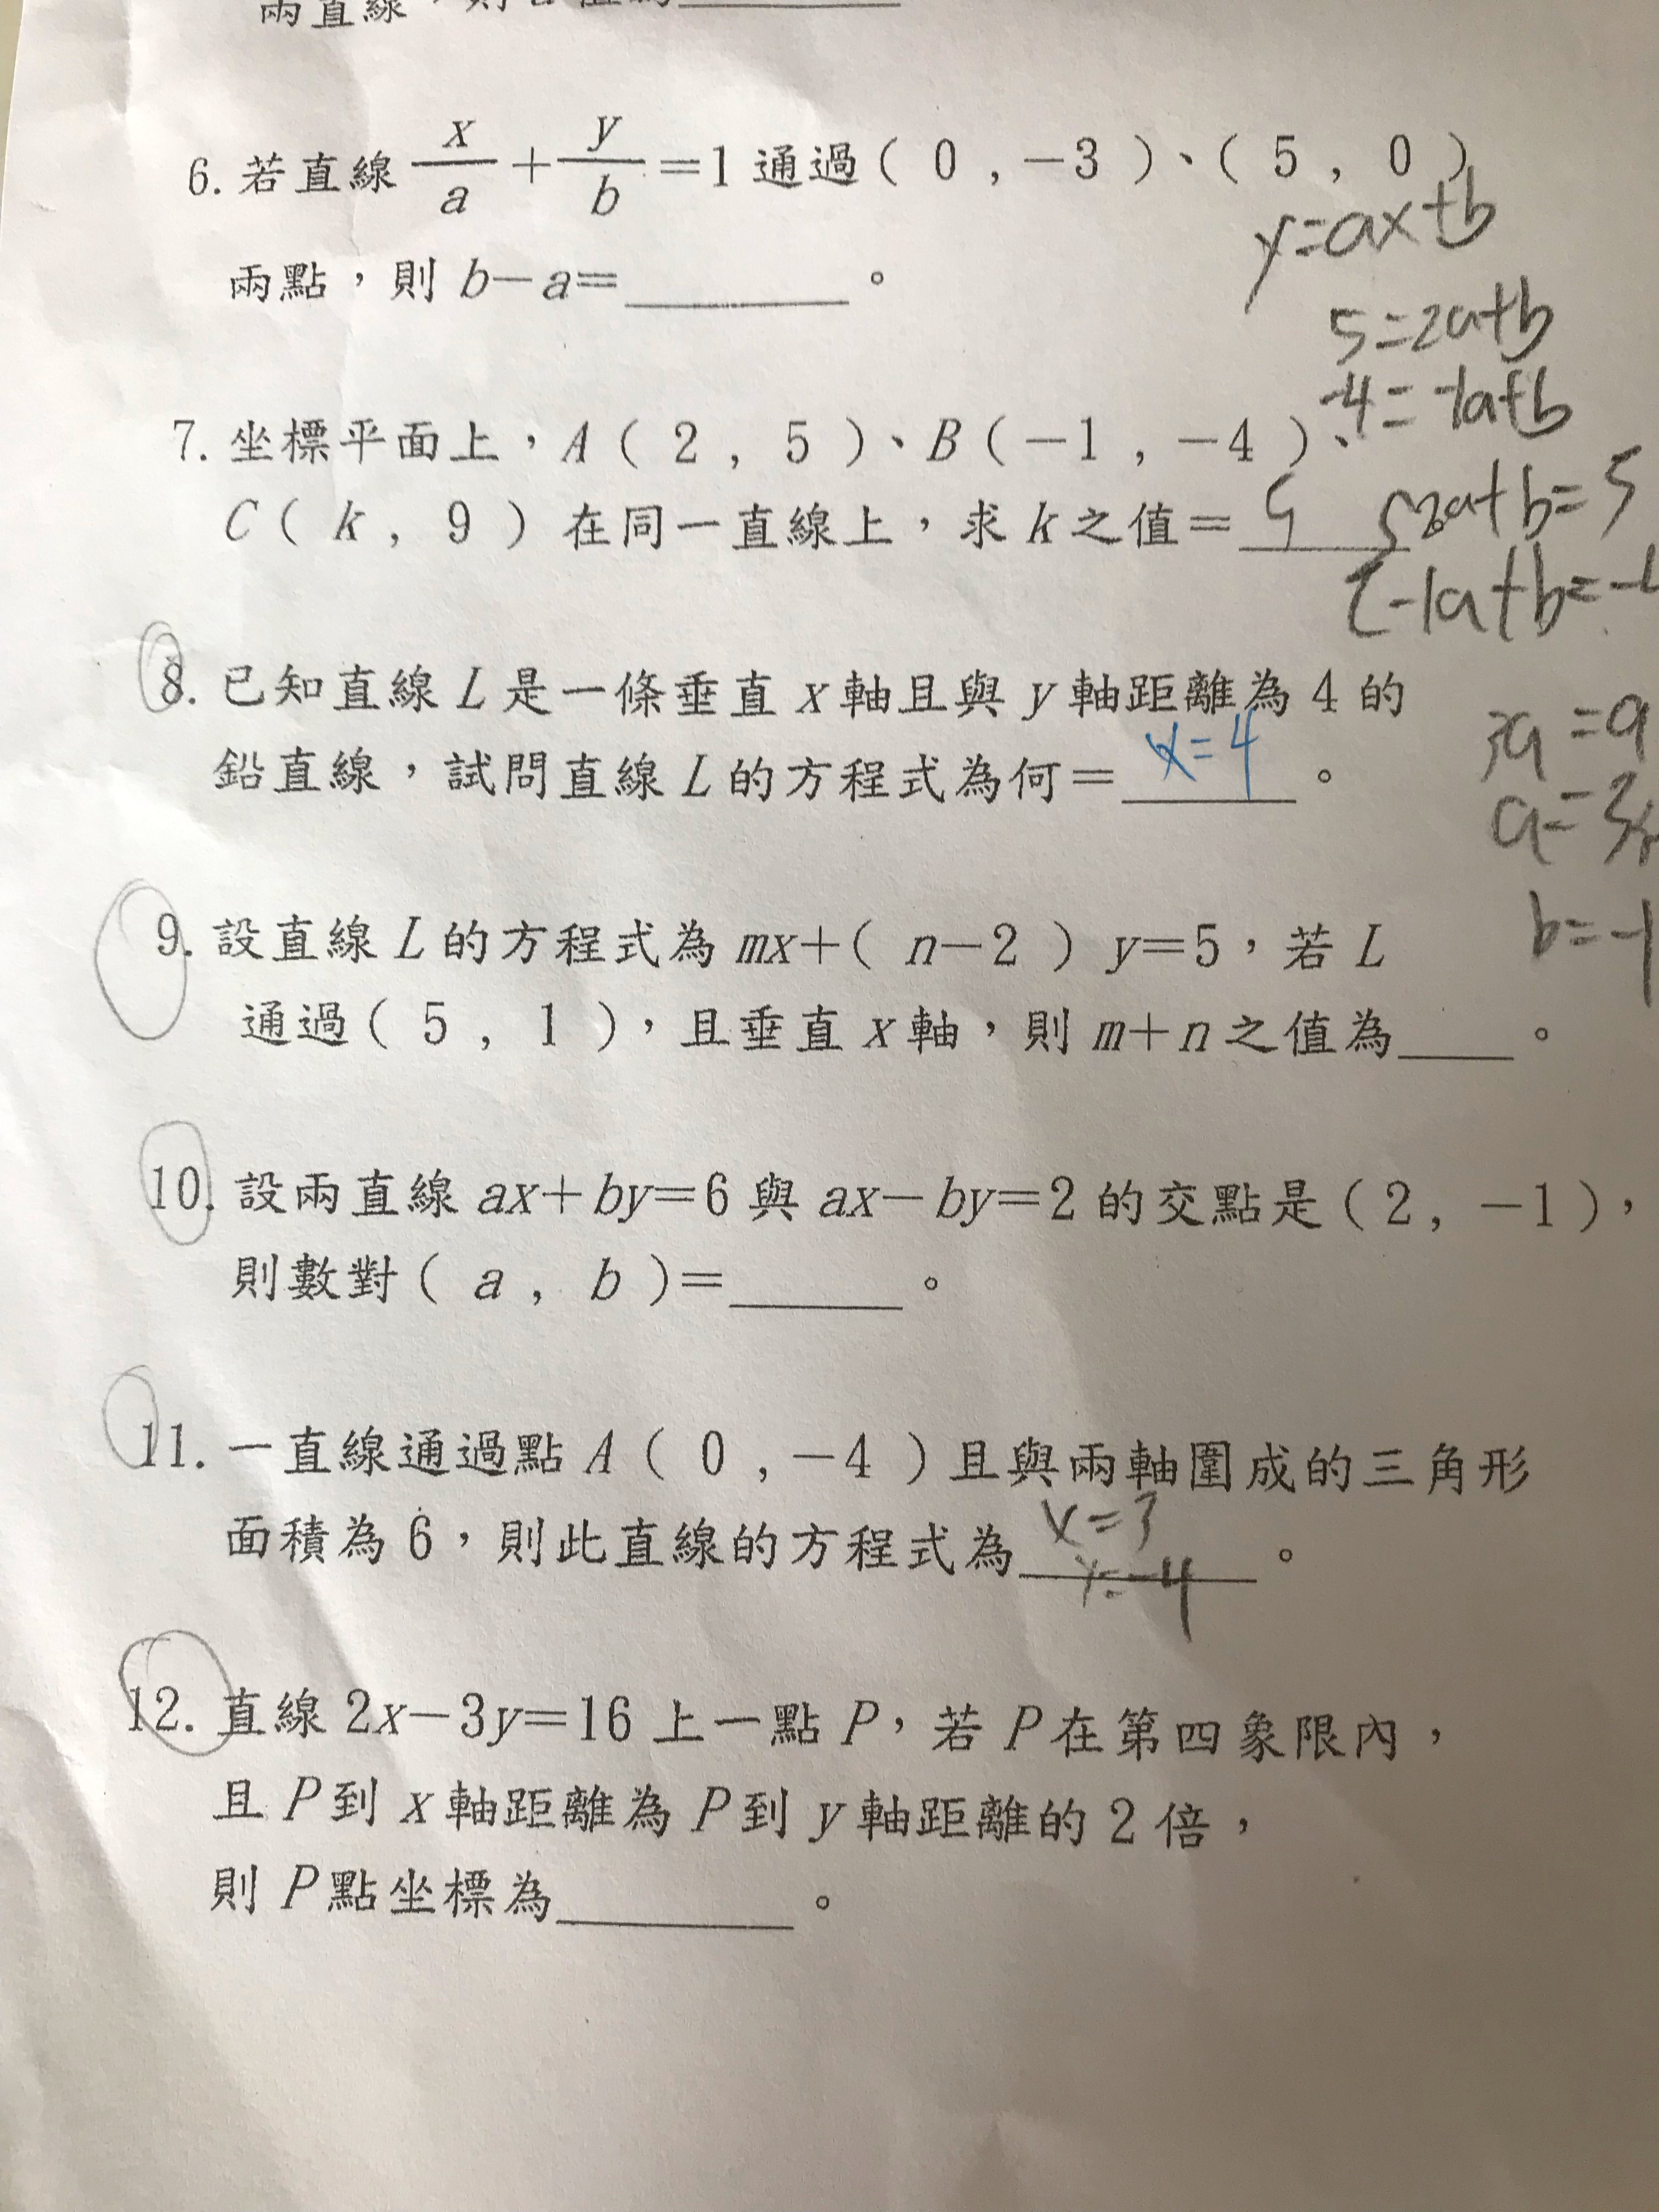 兩直線，則
6. 若直線 x/a + y/b =1 通過( 0 , −3 )、( 5 , 0 )
y=ax+b
兩點，則 b−a=________。
5=2a+b
-4=-1a+b
7. 坐標平面上，A( 2 , 5 )、B(−1 , −4 )、
C( k , 9 ) 在同一直線上，求 k 之值=5
2a+b=5
-1a+b=-
8. 已知直線 L 是一條垂直 x 軸且與 y 軸距離為 4 的
鉛直線，試問直線 L 的方程式為何= x=4 。
3a=9
a=3
b=-1
9. 設直線 L 的方程式為 mx+( n−2 ) y=5，若 L
通過( 5 , 1 )，且垂直 x 軸，則 m+n 之值為____。
10. 設兩直線 ax+by=6 與 ax−by=2 的交點是(2, −1)，
則數對( a , b )=______。
11. 一直線通過點 A( 0 , −4 )且與兩軸圍成的三角形
面積為 6，則此直線的方程式為 x=3 。
y=-4
12. 直線 2x−3y=16 上一點 P，若 P 在第四象限內，
且 P 到 x 軸距離為 P 到 y 軸距離的 2 倍，
則 P 點坐標為________。